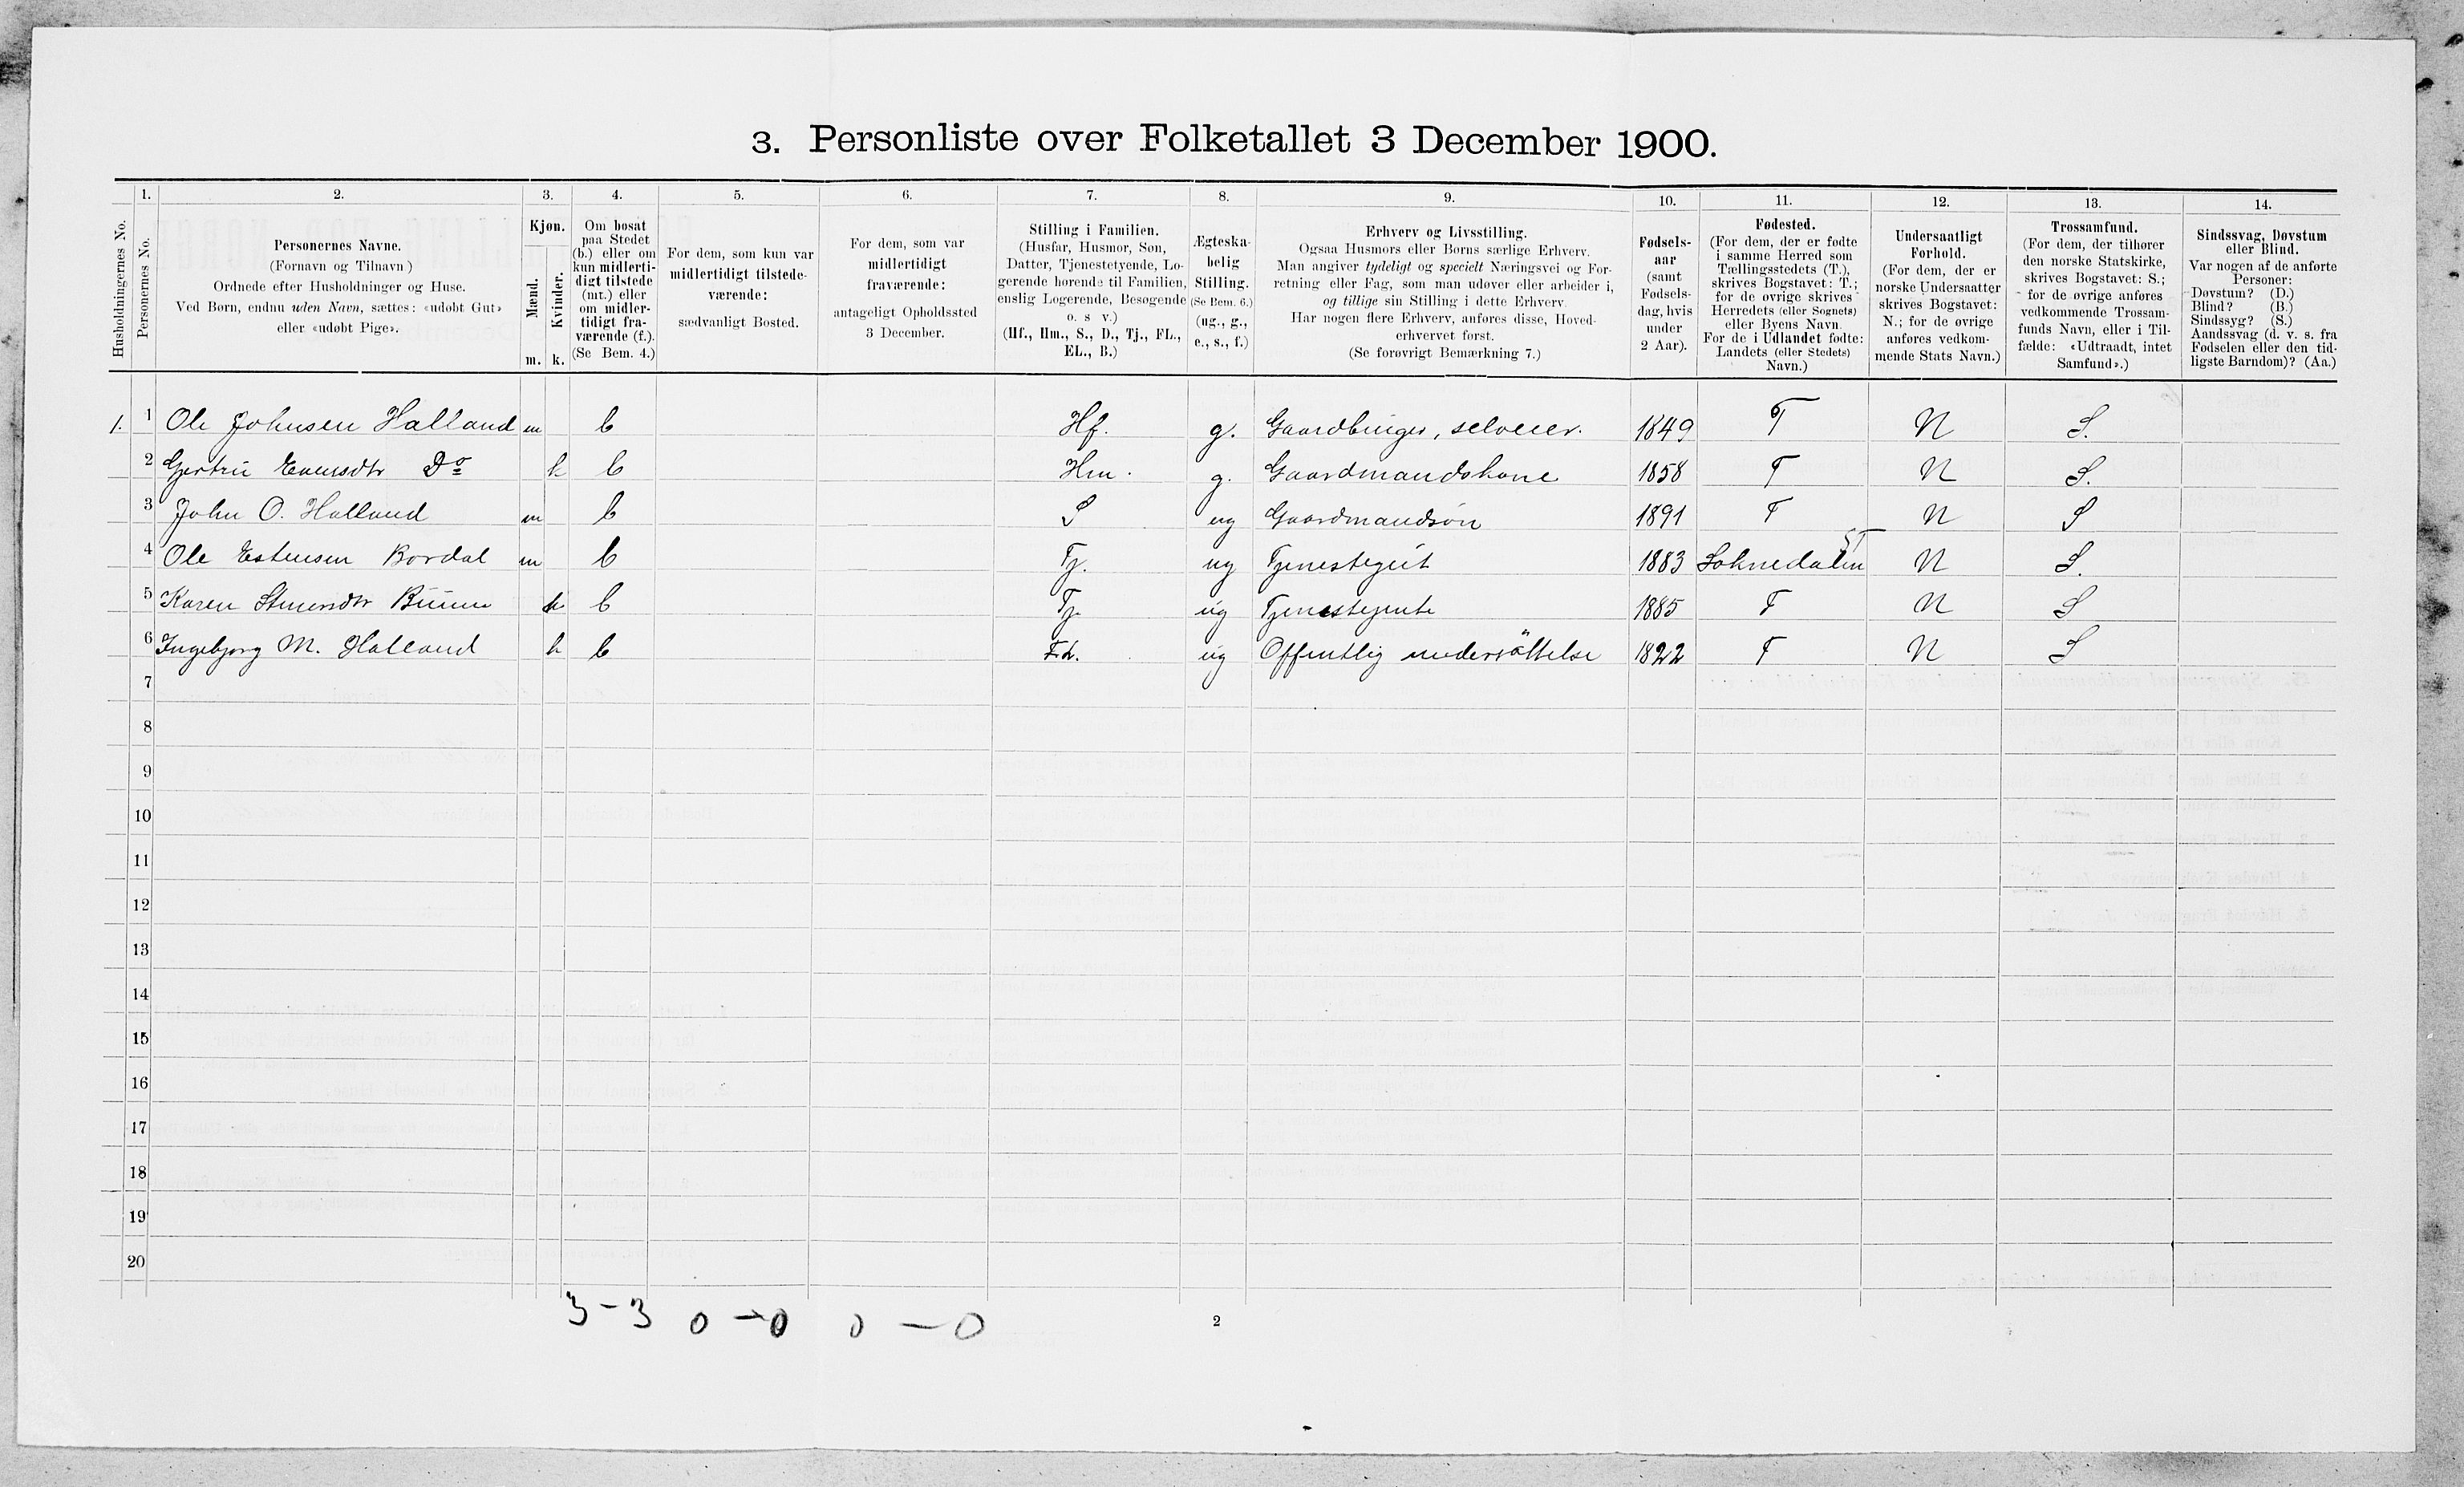 3. Personliste over Folketallet 3 December 1900.
Husholdningernes No.
1.
Personernes No.
2.
Personernes Navne.
(Fornavn og Tilnavn)
Ordnede efter Husholdninger og Huse.
Ved Børn, endnu uden Navn, sættes: «udøbt Gut»
eller «udøbt Pige».
3.
Kjøn.
Mænd.
Kvinder.
m. k.
4.
Om bosat
paa Stedet
(b.) eller om
kun midlerti-
digt tilstede
(mt.) eller
om midler-
tidigt fra-
værende (f.).
(Se Bem. 4.)
5.
For dem, som kun var
midlertidigt tilstede-
værende:
sædvanligt Bosted.
6.
For dem, som var
midlertidigt
fraværende:
antageligt Opholdssted
3 December.
7.
Stilling i Familien.
(Husfar, Husmor, Søn,
Datter, Tjenestetyende, Lo-
gerende hørende til Familien,
enslig Logerende, Besøgende
o. s v.)
(Hf., Hm., S., D., Tj., FL.,
EL., B.)
8.
Ægteska-
belig
Stilling.
(Se Bem. 6.)
(ug., g.,
e., s., f.)
9.
Erhverv og Livsstilling.
Ogsaa Husmors eller Børns særlige Erhverv.
Man angiver tydeligt og specielt Næringsvei og For-
retning eller Fag, som man udøver eller arbeider i,
og tillige sin Stilling i dette Erhverv.
Har nogen flere Erhverv, anføres disse, Hoved-
erhvervet først.
(Se forøvrigt Bemærkning 7.)
10.
Fødsels-
aar
(samt
Fødsels-
dag, hvis
under
2 Aar).
11.
Fødested.
(For dem, der er fødte
i samme Herred som
Tællingsstedets (T.),
skrives Bogstavet: T.;
for de øvrige skrives
Herredets (eller Sognets)
eller Byens Navn.
For de i Udlandet fødte:
Landets (eller Stedets)
Navn.)
12.
Undersaatligt
Forhold.
(For dem, der er
norske Undersaatter
skrives Bogstavet:
N.; for de øvrige
anføres vedkom-
mende Stats Navn.)
13.
Trossamfund.
(For dem, der tilhører
den norske Statskirke,
skrives Bogstavet: S.;
for de øvrige anføres
vedkommende Trossam-
funds Navn, eller i Til-
fælde: «Udtraadt, intet
Samfund».)
14.
Sindssvag, Døvstum
eller Blind.
Var nogen af de anførte
Personer:
Døvstum? (D.)
Blind? (B.)
Sindssyg? (S.)
Aandssvag (d. v. s. fra
Fødselen eller den tid-
ligste Barndom)? (Aa.)
1. 1 Ole Johnsen Halland m b Hf. g. Gaardbruger, selveier. 1849 T N S.
2 Gjertrü Evensdtr Do k b Hm. g. Gaardmandskone 1858 T N S.
3 John O. Halland m b S ug Gaardmandsøn 1891 T N S
4 Ole Estensen Bordal m b Tj. ug Tjenestegut 1883 Soknedalen ST N S.
5 Karen k b Tj. ug Tjenestejente 1885 T N S
6 Ingebjorg M. Halland k b F.L. ug Offentlig understöttelse 1822 T N S
7
8
9
10
11
12
13
14
15
16
17
18
19
20
3 - 3 0 - 0 0 - 0
2